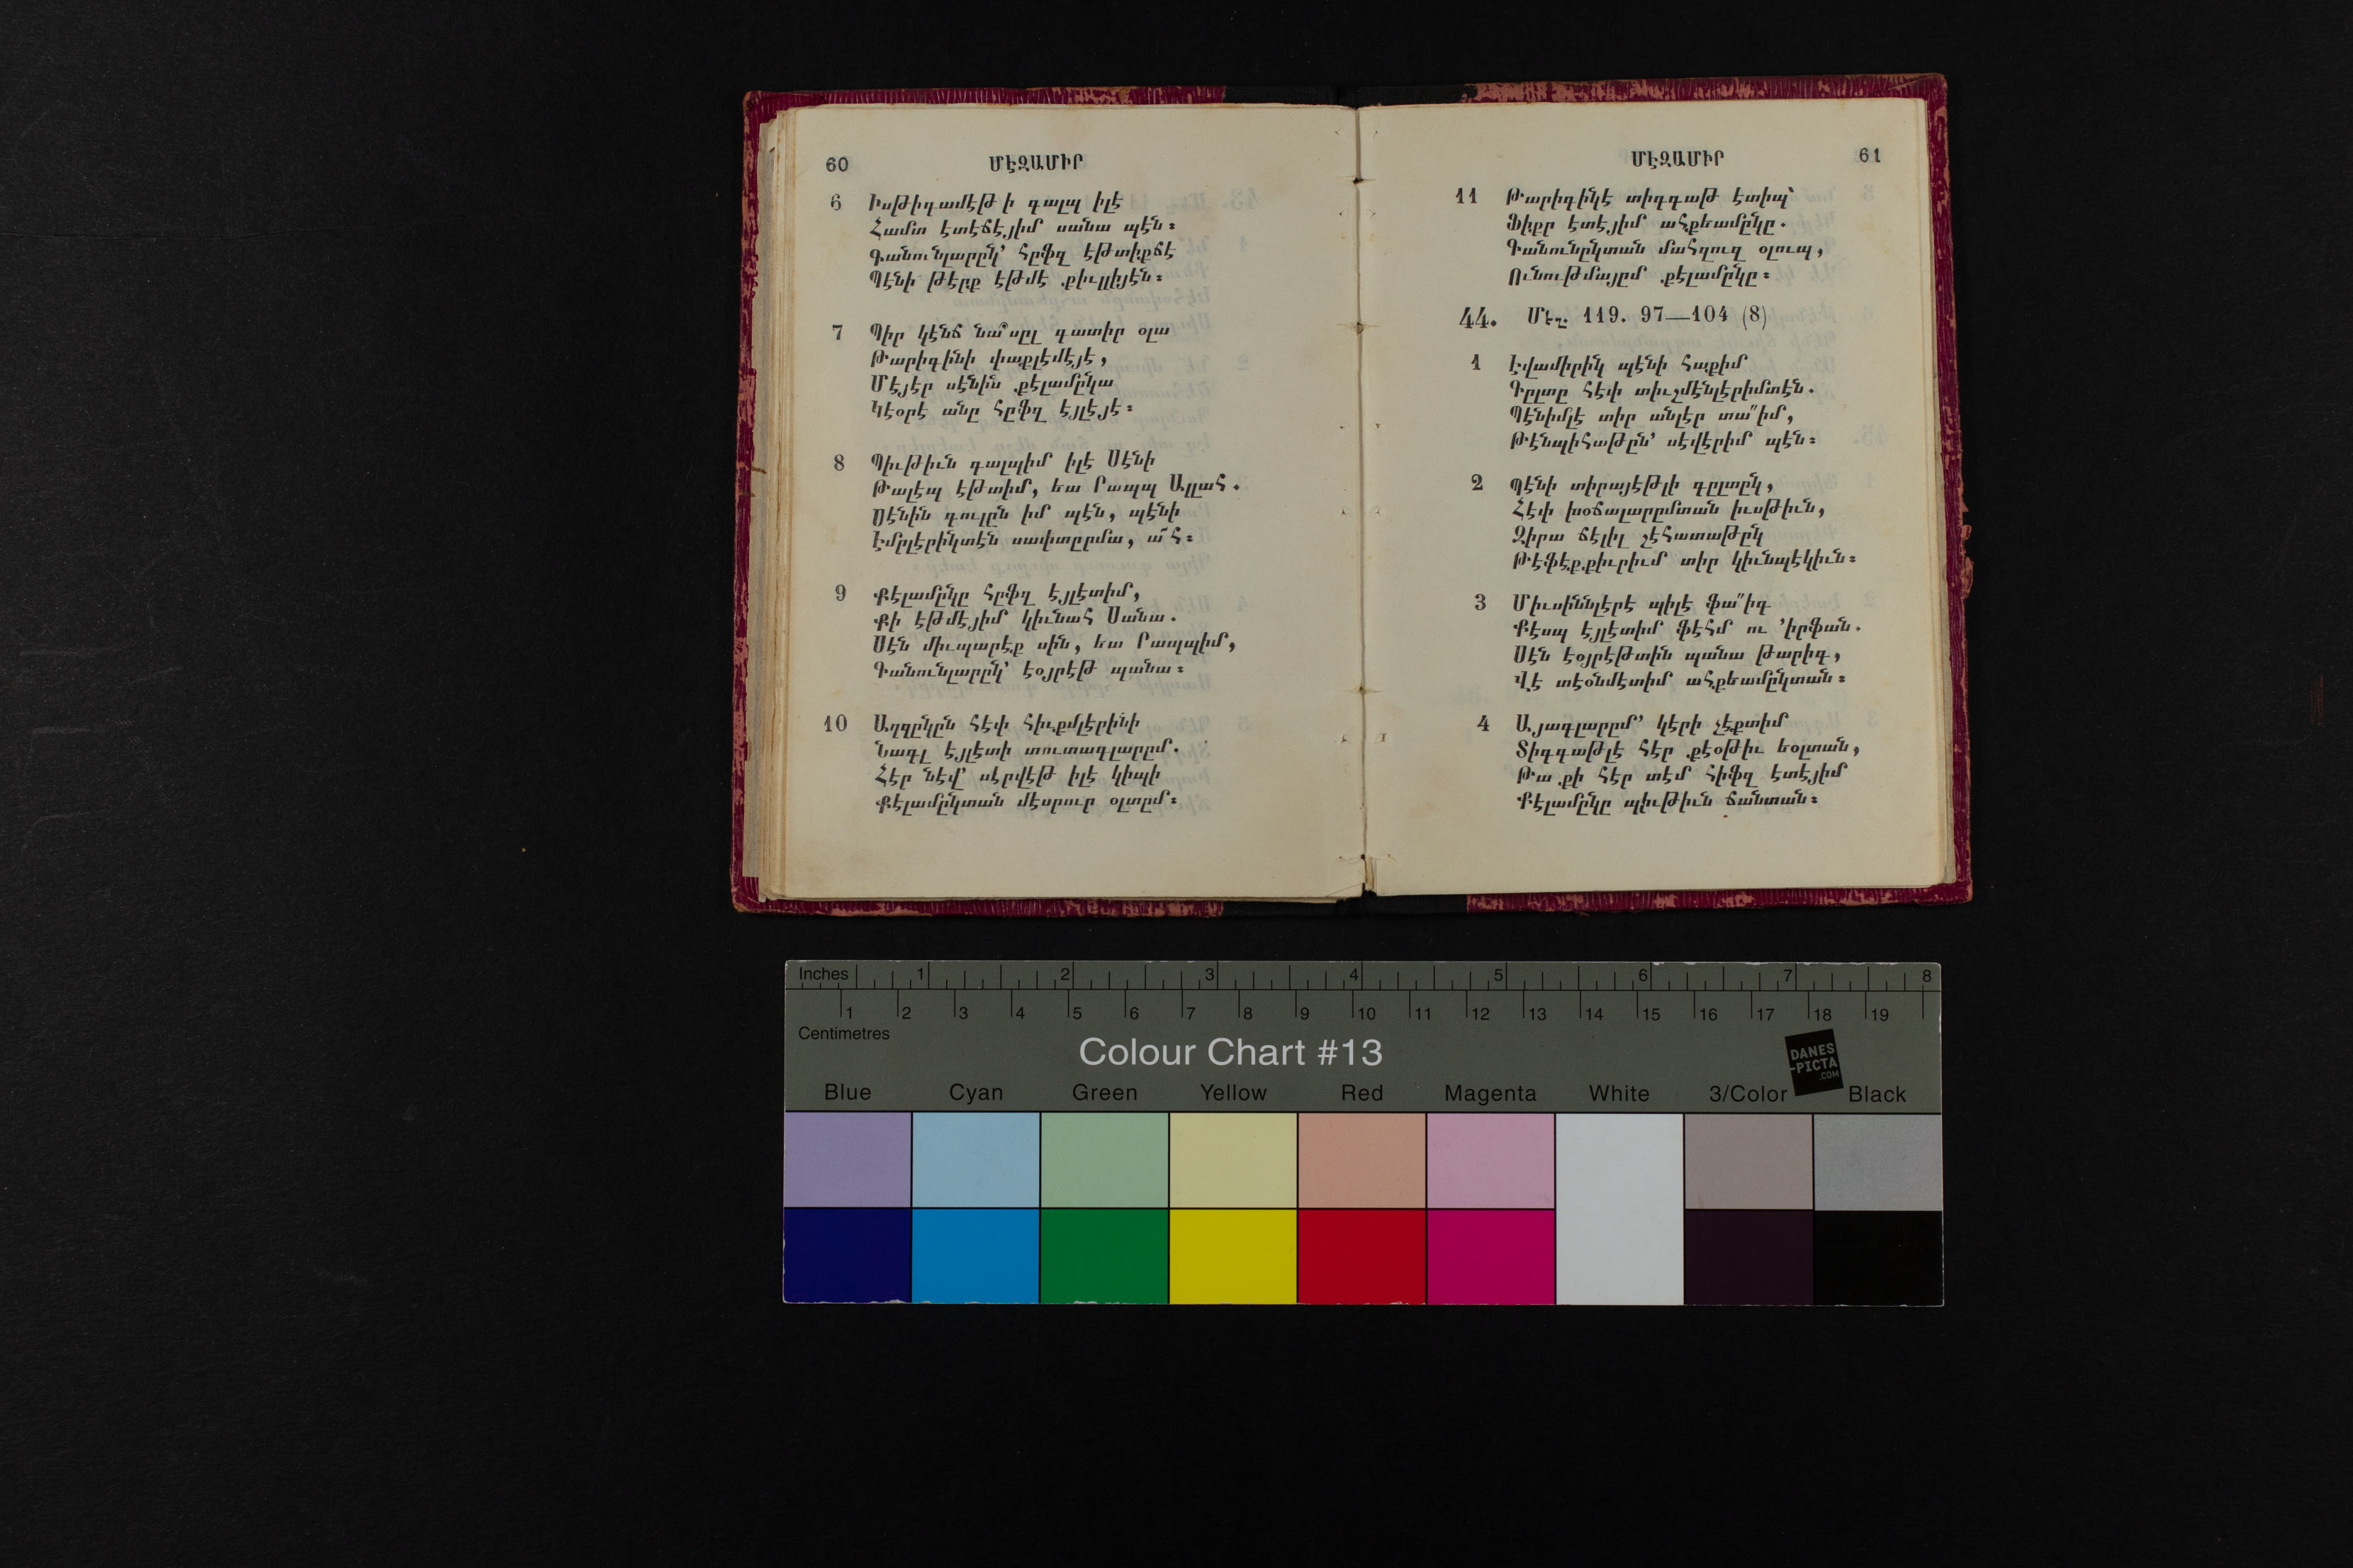 60 ՄԷԶԱՄԻՐ
6 Իսթիգամէթ ի գալպ իլէ
Համտ էտէճէյիմ սանա պէն։
Գանունլարըկ՚ հըֆզ էթտիքճէ
Պէնի թէրք էթմէ քիւլլիյէն։
7 Պիր կէնճ նա՞սըլ գատիր օլա
Թարիգինի փաքլէմէյէ,
Մէյէր սէնին քէլամըկա
Կէօրէ անը հըֆզ էյլէյէ։
8 Պիւթիւն գալպիմ իլէ Սէնի
Թալէպ էթտիմ, եա Րապպ Ալլահ.
Սէնին գուլըն իմ պէն, պէնի
Էմրլէրիկտէն սափտըրմա, ա՜հ։
9 Քէլամըկը հըֆզ էյլէտիմ,
Քի էթմէյիմ կիւնահ Սանա.
Սէն միւպարէք սին, եա Րապպիմ,
Գանունլարըկ՚ էօյրէթ պանա։
10 Աղզըկըն հէփ հիւքմլէրինի
Նագլ էյլէտի տուտագլարըմ.
Հէր նէվ՚ սէրվէթ իլէ կիպի
Քէլամըկտան մէսրուր օլտըմ։
ՄԷԶԱՄԻՐ 61
11 Թարիգիկէ տիգգաթ էտիպ՝
Ֆիքր էտէյիմ ահքեամըկը.
Գանունըկտան մահզուզ օլուպ,
Ունութմայըմ քէլամըկը։
44. Մէզ. 119. 97—104 (8)
1 Էվամիրիկ պէնի հաքիմ
Գըլտը հէփ տիւշմէնլէրիմտէն.
Պէնիմլէ տիր անլէր տա՛՛իմ,
Թէնպիհաթըն՚ սէվէրիմ պէն։
2 Պէնի տիրայէթլի գըլտըկ,
Հէփ խօճալարըմտան իւսթիւն,
Զիրա ճէլիլ շէհատաթըկ
Թէֆէքքիւրիւմ տիր կիւնպէկիւն։
3 Միւսիննլէրէ պիլէ ֆա՛՛իգ
Քէսպ էյլէտիմ ֆէհմ ու ՚իրֆան.
Սէն էօյրէթտին պանա թարիգ,
Վէ տէօնմէտիմ ահքեամըկտան։
4 Այագլարըմ՚ կէրի չէքտիմ
Տիգգաթլէ հէր քէօթիւ եօլտան,
Թա քի հէր տէմ հիֆզ էտէյիմ
Քէլամըկը պիւթիւն ճանտան։
Inches 1 2 3 4 5 6 7 8
1 2 3 4 5 6 7 8 9 10 11 12 13 14 15 16 17 18 19
Centimetres
Colour Chart #13
DANES
-PICTA
.COM
Blue Cyan Green Yellow Red Magenta White 3/Color Black